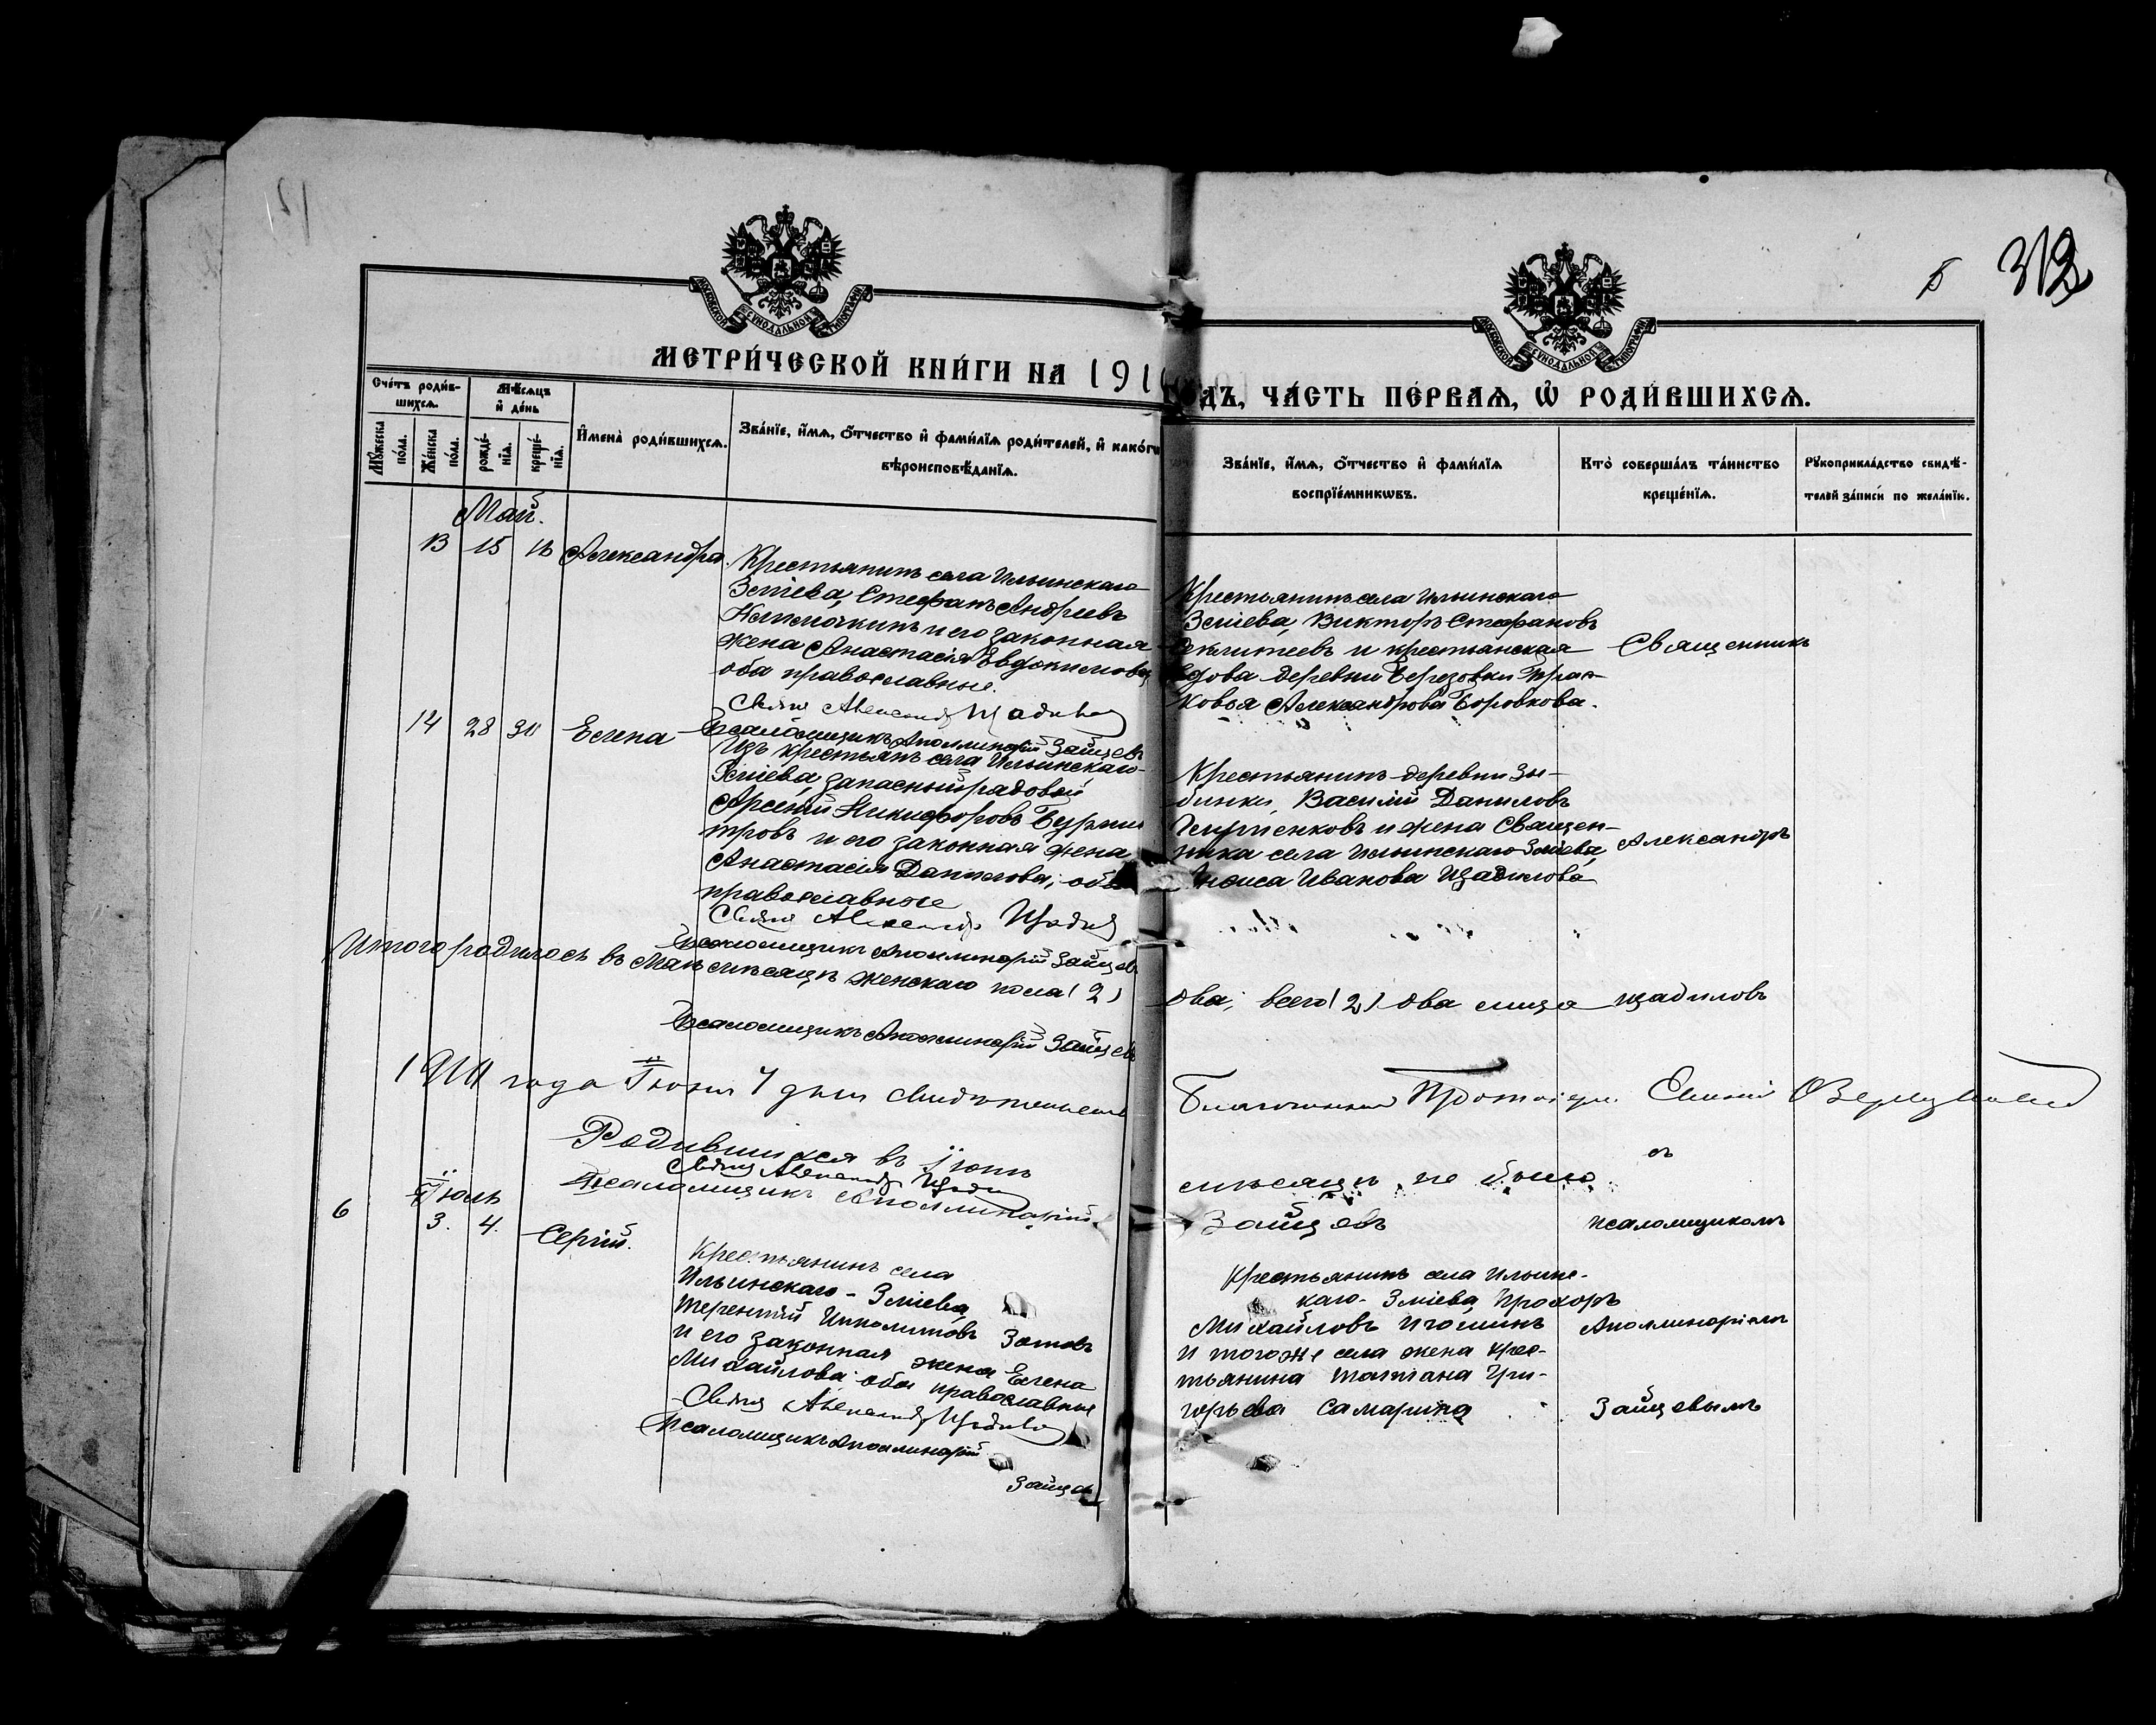 312
МОСКОВСКОЙ СѴНОДАЛЬНОЙ ТИПОГРАФІИ
МОСКОВСКОЙ СѴНОДАЛЬНОЙ ТИПОГРАФІИ
МЕТРИ́ЧЕСКОЙ КНИ́ГИ НА 191
ГОДЪ, ЧА́СТЬ ПЕ́РВАѦ, Ѽ РОДИ́ВШИХСѦ.
Сче́тъ роди́в-
шихсѧ.
Мѣ́сѧцъ
и҆ де́нь
Мꙋ́жеска
по́ла.
Же́нска
по́ла.
рожде́-
нїѧ.
креще́-
нїѧ.
И҆мена̀ роди́вшихсѧ.
Зва́нїе, и҆́мѧ, ѻ҆́тчество и҆ фами́лїѧ роди́телей, и҆ како́гѡ
вѣроисповѣ́данїѧ.
Зва́нїе, и҆́мѧ, ѻ҆́тчество и҆ фами́лїѧ
воспрїе́мникѡвъ.
Кто̀ соверша́лъ та́инство
креще́нїѧ.
Рꙋкоприкла́дство свидѣ́-
телей за́писи по жела́нїю.
Май.
13 15 16 Александра.
Крестьянинъ села Ильинскаго
Зміева, Стефанъ Андреевъ
и его законная
жена Анастасія Евдокимова
оба православные.
Александръ Щадиловъ
Псаломщикъ Аполлинарій Зайцевъ
Крестьянинъ села Ильинскаго
Зміева, Викторъ Стефановъ
и крестьянская
вдова деревни Березовки Прас-
ковья Александрова Боровкова.
Священникъ
14 28 30 Елена
Изъ крестьянъ села Ильинскаго-
Зміева, запасный рядовой
Арсеній Никифоровъ
и его законная жена
Анастасія Данилова, оба
православные
Александръ
Псаломщикъ Аполлинарій Зайцевъ
Крестьянинъ деревни Зы-
бинки, Василій Даниловъ
и жена Священ-
ника села Ильинскаго Зміева,
Иванова Щадилова
Александръ
Итого родилось въ Маѣ мѣсяцѣ женскаго пола (2)
два, всего (2) два лица
Щадиловъ
Псаломщикъ Аполлинарій Зайцевъ
года Іюня 7 дня
Благочинный Протоіерей
Родившихся въ Іюнѣ
мѣсяцѣ не было
съ
Александръ
Псаломщикъ Аполлинарій
Зайцевъ
псаломщикомъ
Іюль
6 3. 4. Сергій.
Крестьянинъ села
Ильинскаго-Зміева,
Терентій Ипполитовъ Зотовъ
и его законная жена Елена
Михайлова: оба православные
Александръ Щадиловъ
Псаломщикъ Аполлинарій
Зайцевъ
Крестьянинъ села Ильинс-
каго-Зміева, Прохоръ
Михайловъ Игошинъ
и того же села жена крес-
тьянина Татіана Гри-
горьева Самарина
Аполлинаріемъ
Зайцевымъ